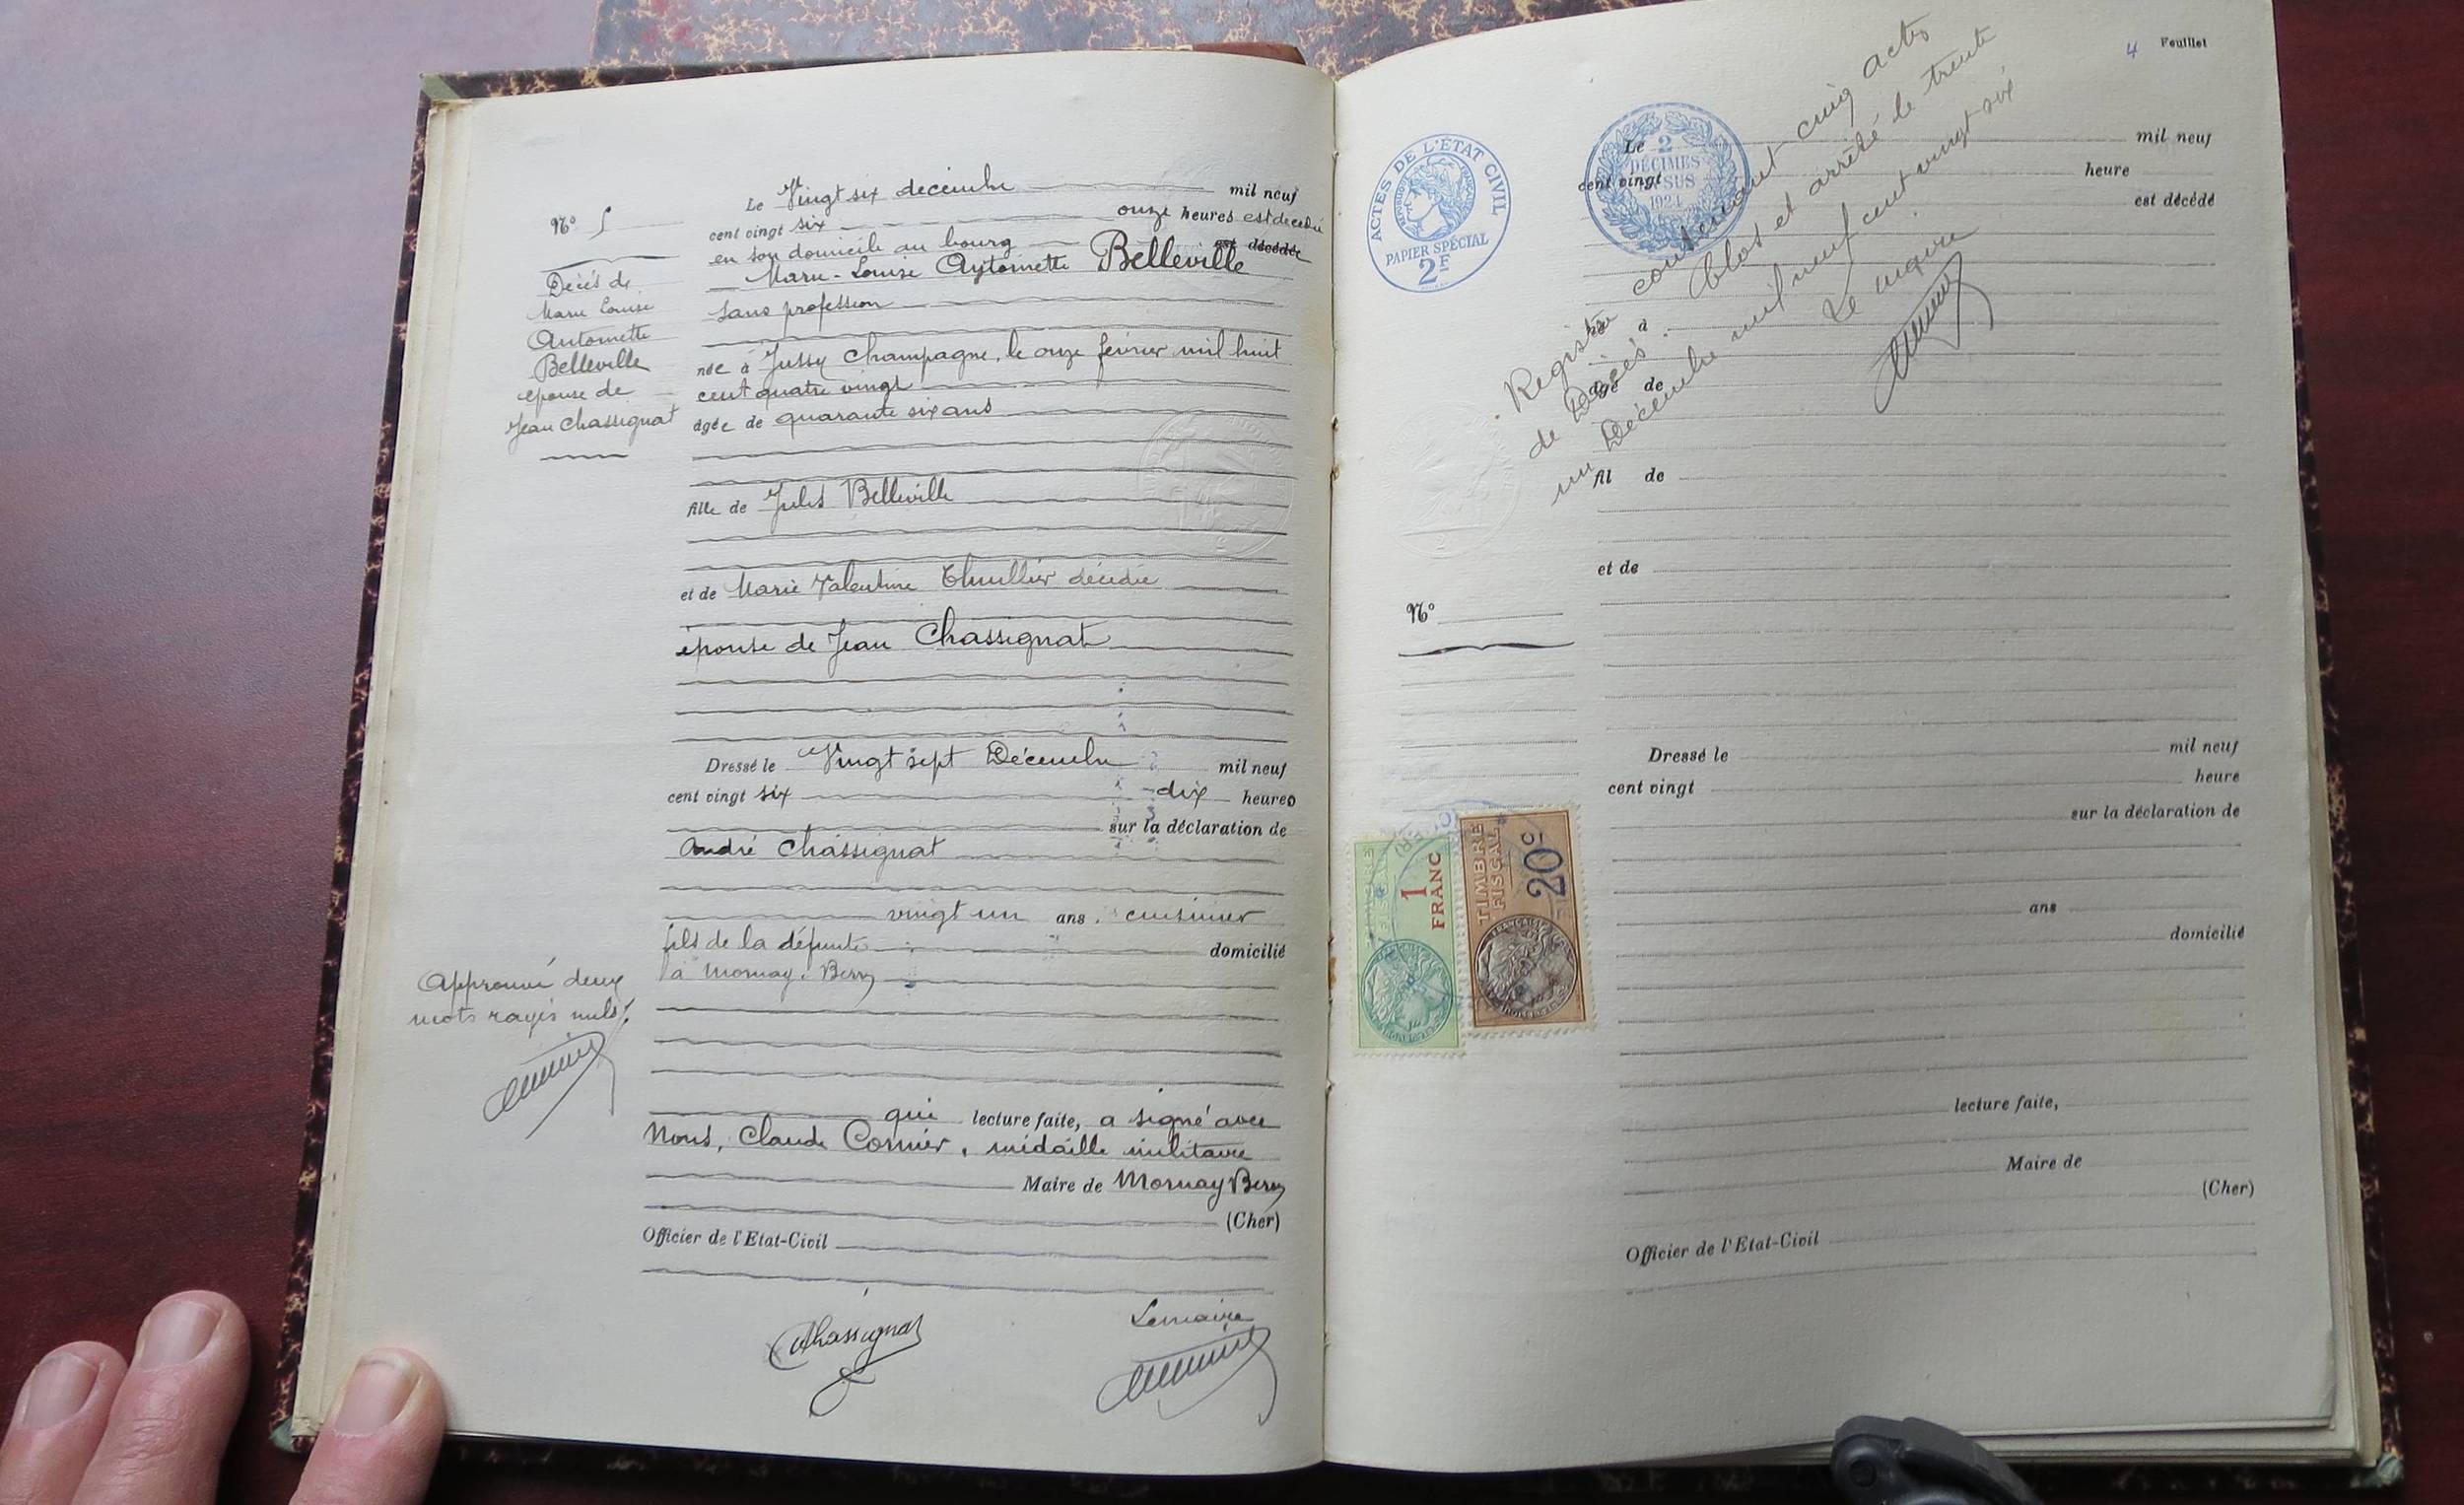 Nº 5
Décès de
Marie Louise
Antoinette
Belleville
épouse de
Jean Chassignat
Le Vingt six décembre mil neuf
cent vingt six onze heures est décédée
en son domicile au bourg est décédée
Marie-Louise Antoinette Belleville
sans profession
née à Jussy Champagne, le onze février mil huit
cent quatre vingt
âgée de quarante six ans
fille de Jules Belleville
et de Marie Valentine Thuillier décédée
épouse de Jean Chassignat
Dressé le Vingt sept Décembre mil neuf
cent vingt six dix heures
sur la déclaration de
André Chassignat
vingt un ans, cuisinier
fils de la défunte domicilié
à Mornay-Berry
Approuvé deux
mots rayés nuls
qui lecture faite, a signé avec
Nous, Claude Cornier, médaille militaire
Maire de Mornay Berry
(Cher)
Officier de l'Etat-Civil
Chassignat
Le maire
4 Feuillet
ACTES DE L'ÉTAT CIVIL
RÉPUBLIQUE FRANÇAISE
PAPIER SPÉCIAL
2F
2
DÉCIMES
EN SUS
1924
Registre contenant cinq actes
de Décès. Clos et arrêté le trente
un Décembre mil neuf cent vingt six
Le maire
Le mil neuf
cent vingt heure
est décédé
né à
âgé de
fil de
et de
Nº
Dressé le mil neuf
cent vingt heure
sur la déclaration de
1
FRANC
TIMBRE
FISCAL
20c
ans
domicilié
lecture faite,
Maire de
(Cher)
Officier de l'Etat-Civil